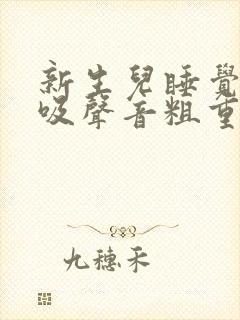 新生兒睡覺
吸聲音粗重
九穗禾